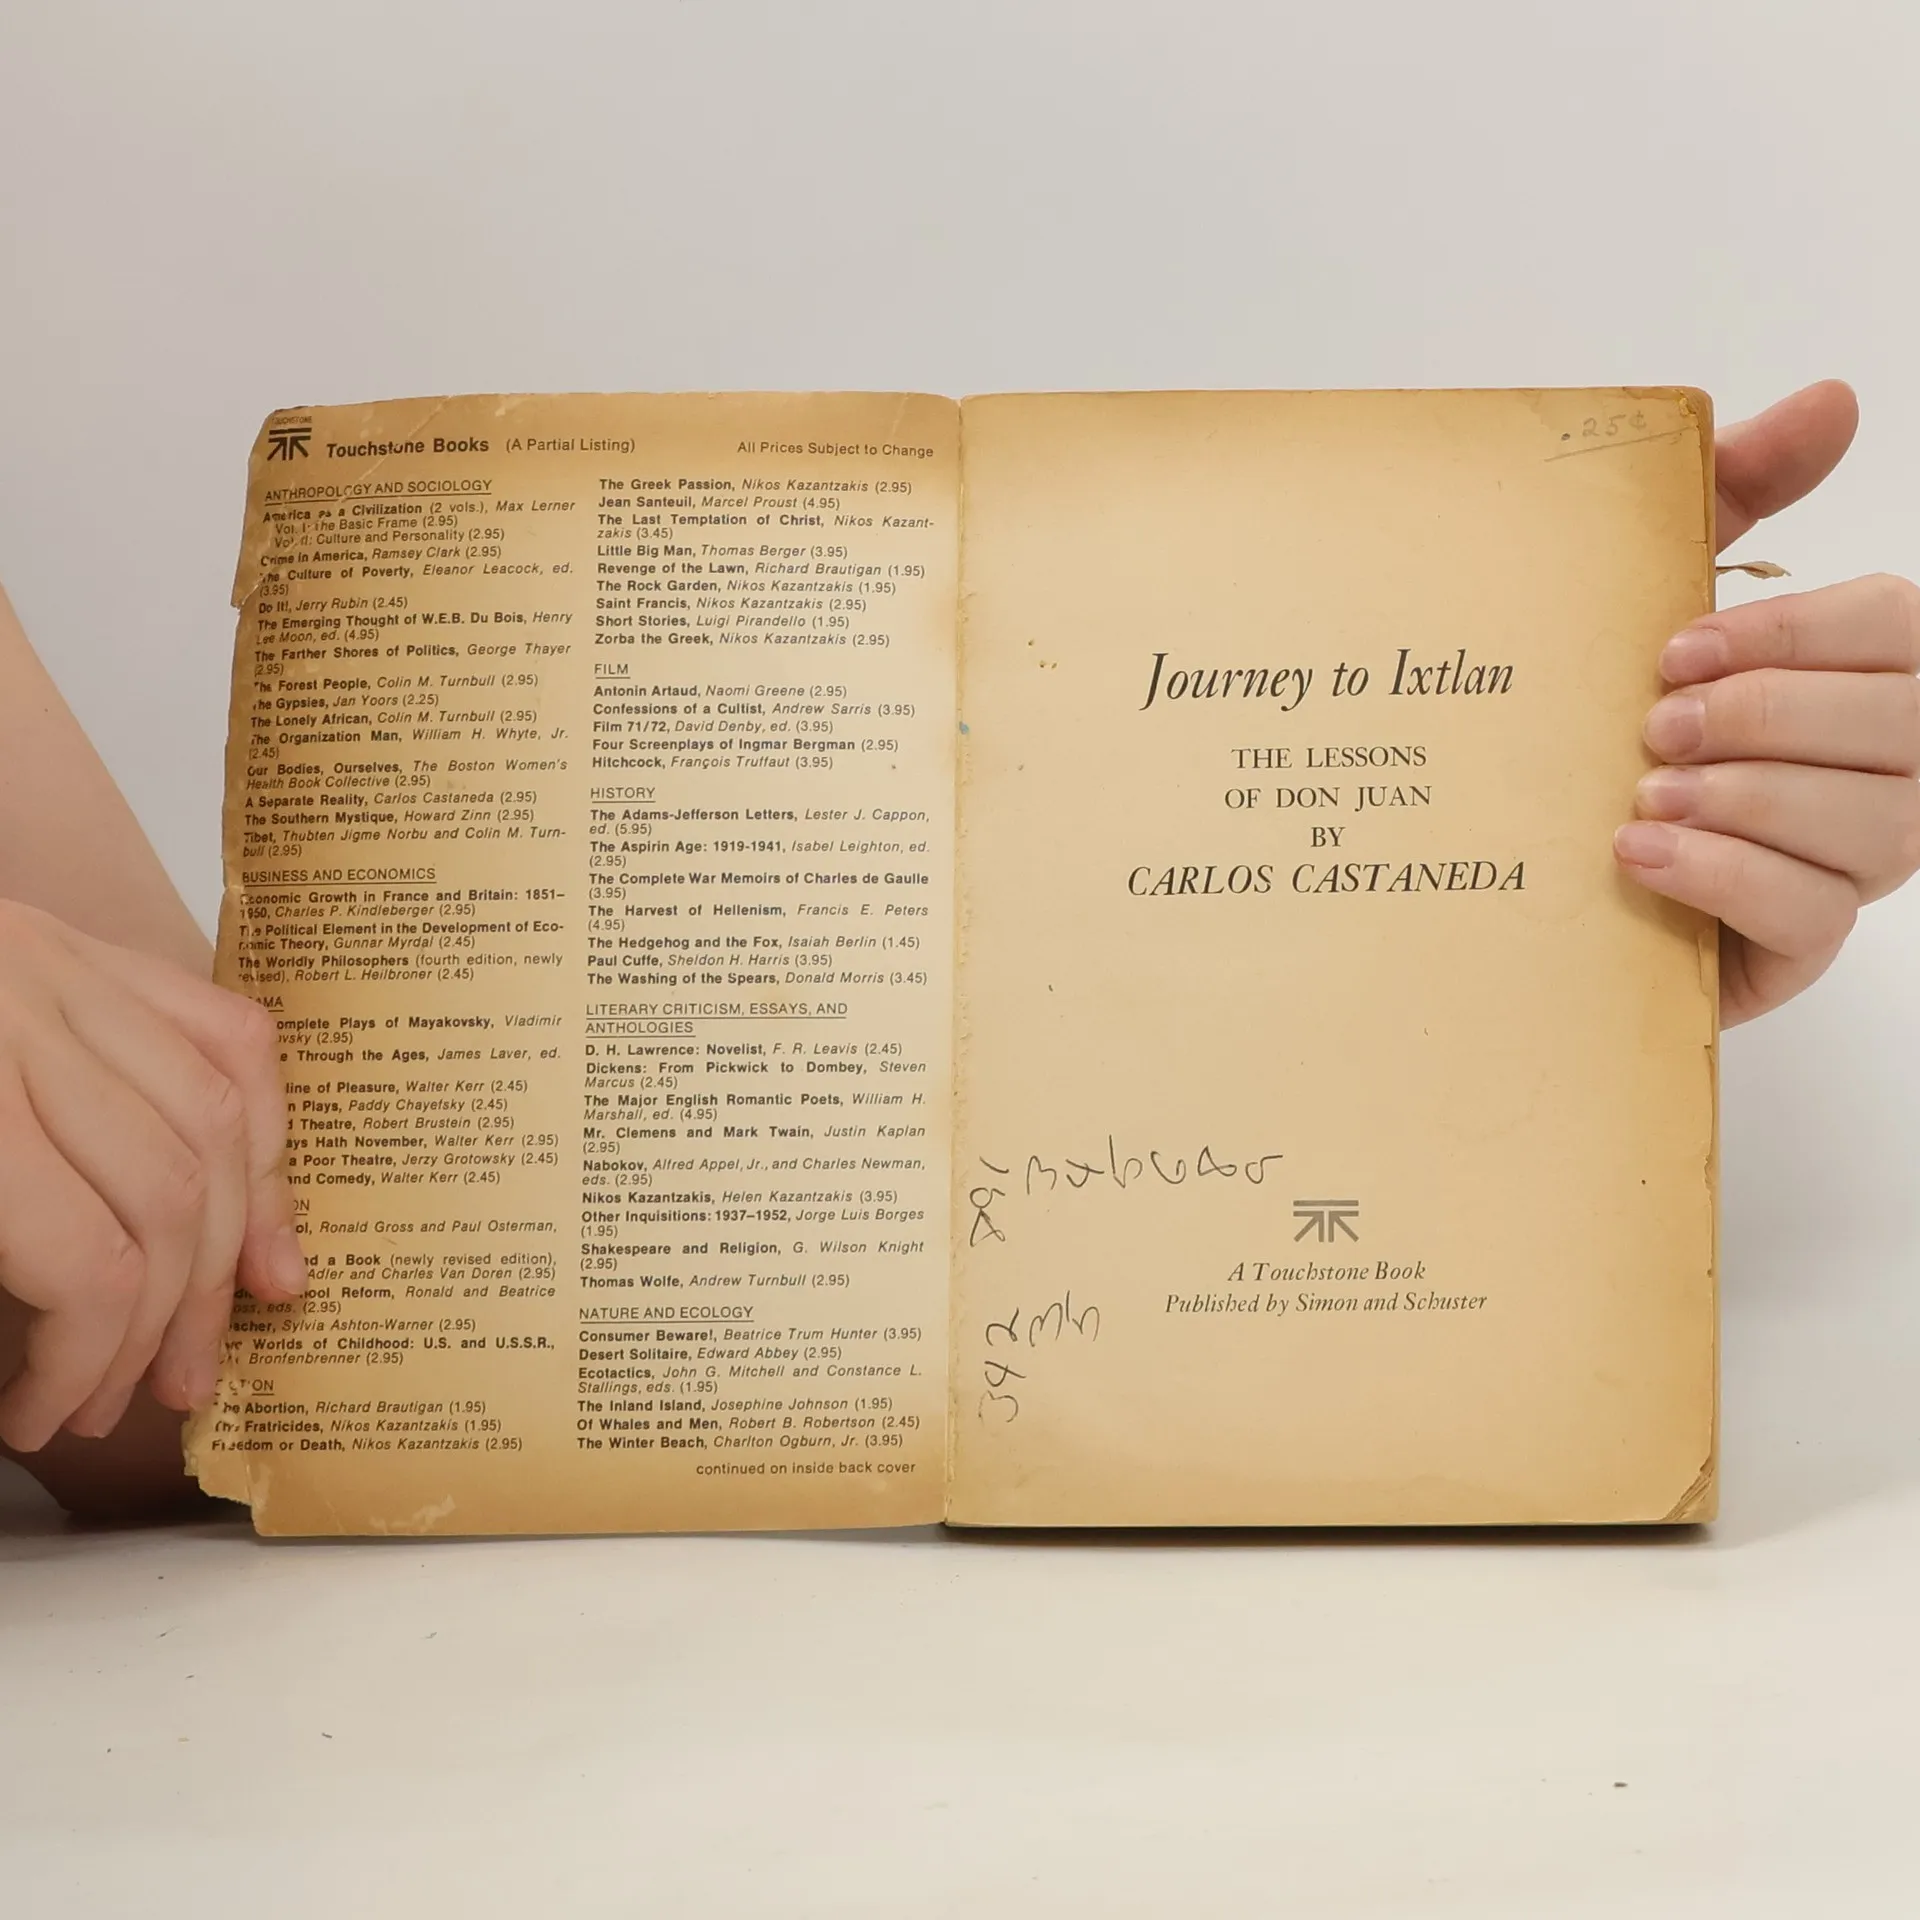 TOUCHSTONE
Touchstone Books (A Partial Listing) All Prices Subject to Change
ANTHROPOLOGY AND SOCIOLOGY
America as a Civilization (2 vols.), Max Lerner
Vol. I: the Basic Frame (2.95)
Vol. II: Culture and Personality (2.95)
Crime in America, Ramsey Clark (2.95)
The Culture of Poverty, Eleanor Leacock, ed.
(3.95)
Do It!, Jerry Rubin (2.45)
The Emerging Thought of W.E.B. Du Bois, Henry
Lee Moon, ed. (4.95)
The Farther Shores of Politics, George Thayer
(2.95)
The Forest People, Colin M. Turnbull (2.95)
The Gypsies, Jan Yoors (2.25)
The Lonely African, Colin M. Turnbull (2.95)
The Organization Man, William H. Whyte, Jr.
(2.45)
Our Bodies, Ourselves, The Boston Women's
Health Book Collective (2.95)
A Separate Reality, Carlos Castaneda (2.95)
The Southern Mystique, Howard Zinn (2.95)
Tibet, Thubten Jigme Norbu and Colin M. Turn-
bull (2.95)
BUSINESS AND ECONOMICS
Economic Growth in France and Britain: 1851–
1950, Charles P. Kindleberger (2.95)
The Political Element in the Development of Eco-
nomic Theory, Gunnar Myrdal (2.45)
The Worldly Philosophers (fourth edition, newly
revised), Robert L. Heilbroner (2.45)
AMA
omplete Plays of Mayakovsky, Vladimir
ovsky (2.95)
e Through the Ages, James Laver, ed.
line of Pleasure, Walter Kerr (2.45)
n Plays, Paddy Chayefsky (2.45)
d Theatre, Robert Brustein (2.95)
ays Hath November, Walter Kerr (2.95)
a Poor Theatre, Jerzy Grotowsky (2.45)
and Comedy, Walter Kerr (2.45)
ON
ol, Ronald Gross and Paul Osterman,
nd a Book (newly revised edition),
Adler and Charles Van Doren (2.95)
ool Reform, Ronald and Beatrice
oss, eds. (2.95)
acher, Sylvia Ashton-Warner (2.95)
Worlds of Childhood: U.S. and U.S.S.R.,
Bronfenbrenner (2.95)
FICTION
The Abortion, Richard Brautigan (1.95)
The Fratricides, Nikos Kazantzakis (1.95)
Freedom or Death, Nikos Kazantzakis (2.95)
The Greek Passion, Nikos Kazantzakis (2.95)
Jean Santeuil, Marcel Proust (4.95)
The Last Temptation of Christ, Nikos Kazant-
zakis (3.45)
Little Big Man, Thomas Berger (3.95)
Revenge of the Lawn, Richard Brautigan (1.95)
The Rock Garden, Nikos Kazantzakis (1.95)
Saint Francis, Nikos Kazantzakis (2.95)
Short Stories, Luigi Pirandello (1.95)
Zorba the Greek, Nikos Kazantzakis (2.95)
FILM
Antonin Artaud, Naomi Greene (2.95)
Confessions of a Cultist, Andrew Sarris (3.95)
Film 71/72, David Denby, ed. (3.95)
Four Screenplays of Ingmar Bergman (2.95)
Hitchcock, François Truffaut (3.95)
HISTORY
The Adams-Jefferson Letters, Lester J. Cappon,
ed. (5.95)
The Aspirin Age: 1919-1941, Isabel Leighton, ed.
(2.95)
The Complete War Memoirs of Charles de Gaulle
(3.95)
The Harvest of Hellenism, Francis E. Peters
(4.95)
The Hedgehog and the Fox, Isaiah Berlin (1.45)
Paul Cuffe, Sheldon H. Harris (3.95)
The Washing of the Spears, Donald Morris (3.45)
LITERARY CRITICISM, ESSAYS, AND
ANTHOLOGIES
D. H. Lawrence: Novelist, F. R. Leavis (2.45)
Dickens: From Pickwick to Dombey, Steven
Marcus (2.45)
The Major English Romantic Poets, William H.
Marshall, ed. (4.95)
Mr. Clemens and Mark Twain, Justin Kaplan
(2.95)
Nabokov, Alfred Appel, Jr., and Charles Newman,
eds. (2.95)
Nikos Kazantzakis, Helen Kazantzakis (3.95)
Other Inquisitions: 1937–1952, Jorge Luis Borges
(1.95)
Shakespeare and Religion, G. Wilson Knight
(2.95)
Thomas Wolfe, Andrew Turnbull (2.95)
NATURE AND ECOLOGY
Consumer Beware!, Beatrice Trum Hunter (3.95)
Desert Solitaire, Edward Abbey (2.95)
Ecotactics, John G. Mitchell and Constance L.
Stallings, eds. (1.95)
The Inland Island, Josephine Johnson (1.95)
Of Whales and Men, Robert B. Robertson (2.45)
The Winter Beach, Charlton Ogburn, Jr. (3.95)
continued on inside back cover
.25¢
Journey to Ixtlan
THE LESSONS
OF DON JUAN
BY
CARLOS CASTANEDA
A Touchstone Book
Published by Simon and Schuster